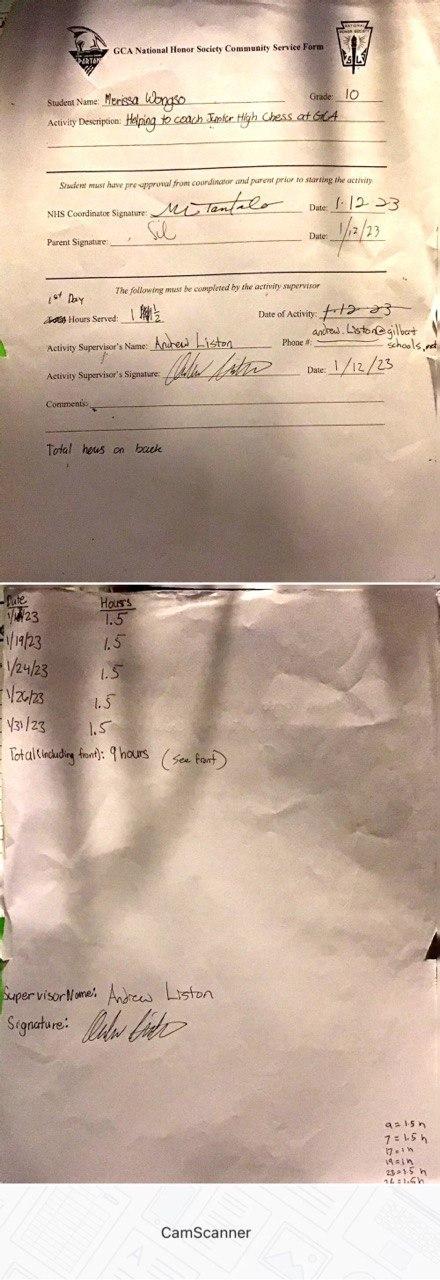 SPARTAN
GCA National Honor Society Community Service Form
NATIONAL
HONOR SOCIETY
Student Name: Merissa Wongso Grade: 10
Activity Description: Helping to coach Junior High Chess at GCA
Student must have pre-approval from coordinator and parent prior to starting the activity
NHS Coordinator Signature: Date: 1-12-23
Parent Signature: Date: 1/12/23
The following must be completed by the activity supervisor
1st Day
Hours Served: 1 1/2 Date of Activity: 1-12-23
Activity Supervisor's Name: Andrew Liston Phone #: andrew.liston@gilbert
schools.net
Activity Supervisor's Signature: Date: 1/12/23
Comments:
Total hours on back
Date Hours
1.5
1/19/23 1.5
1/24/23 1.5
1/26/23 1.5
1/31/23 1.5
Total (including front): 9 hours (see front)
Supervisor Name: Andrew Liston
Signature:
9 = 1.5 h
7 = 1.5 h
17 = 1 h
19 = 1 h
23 = 1.5 h
CamScanner